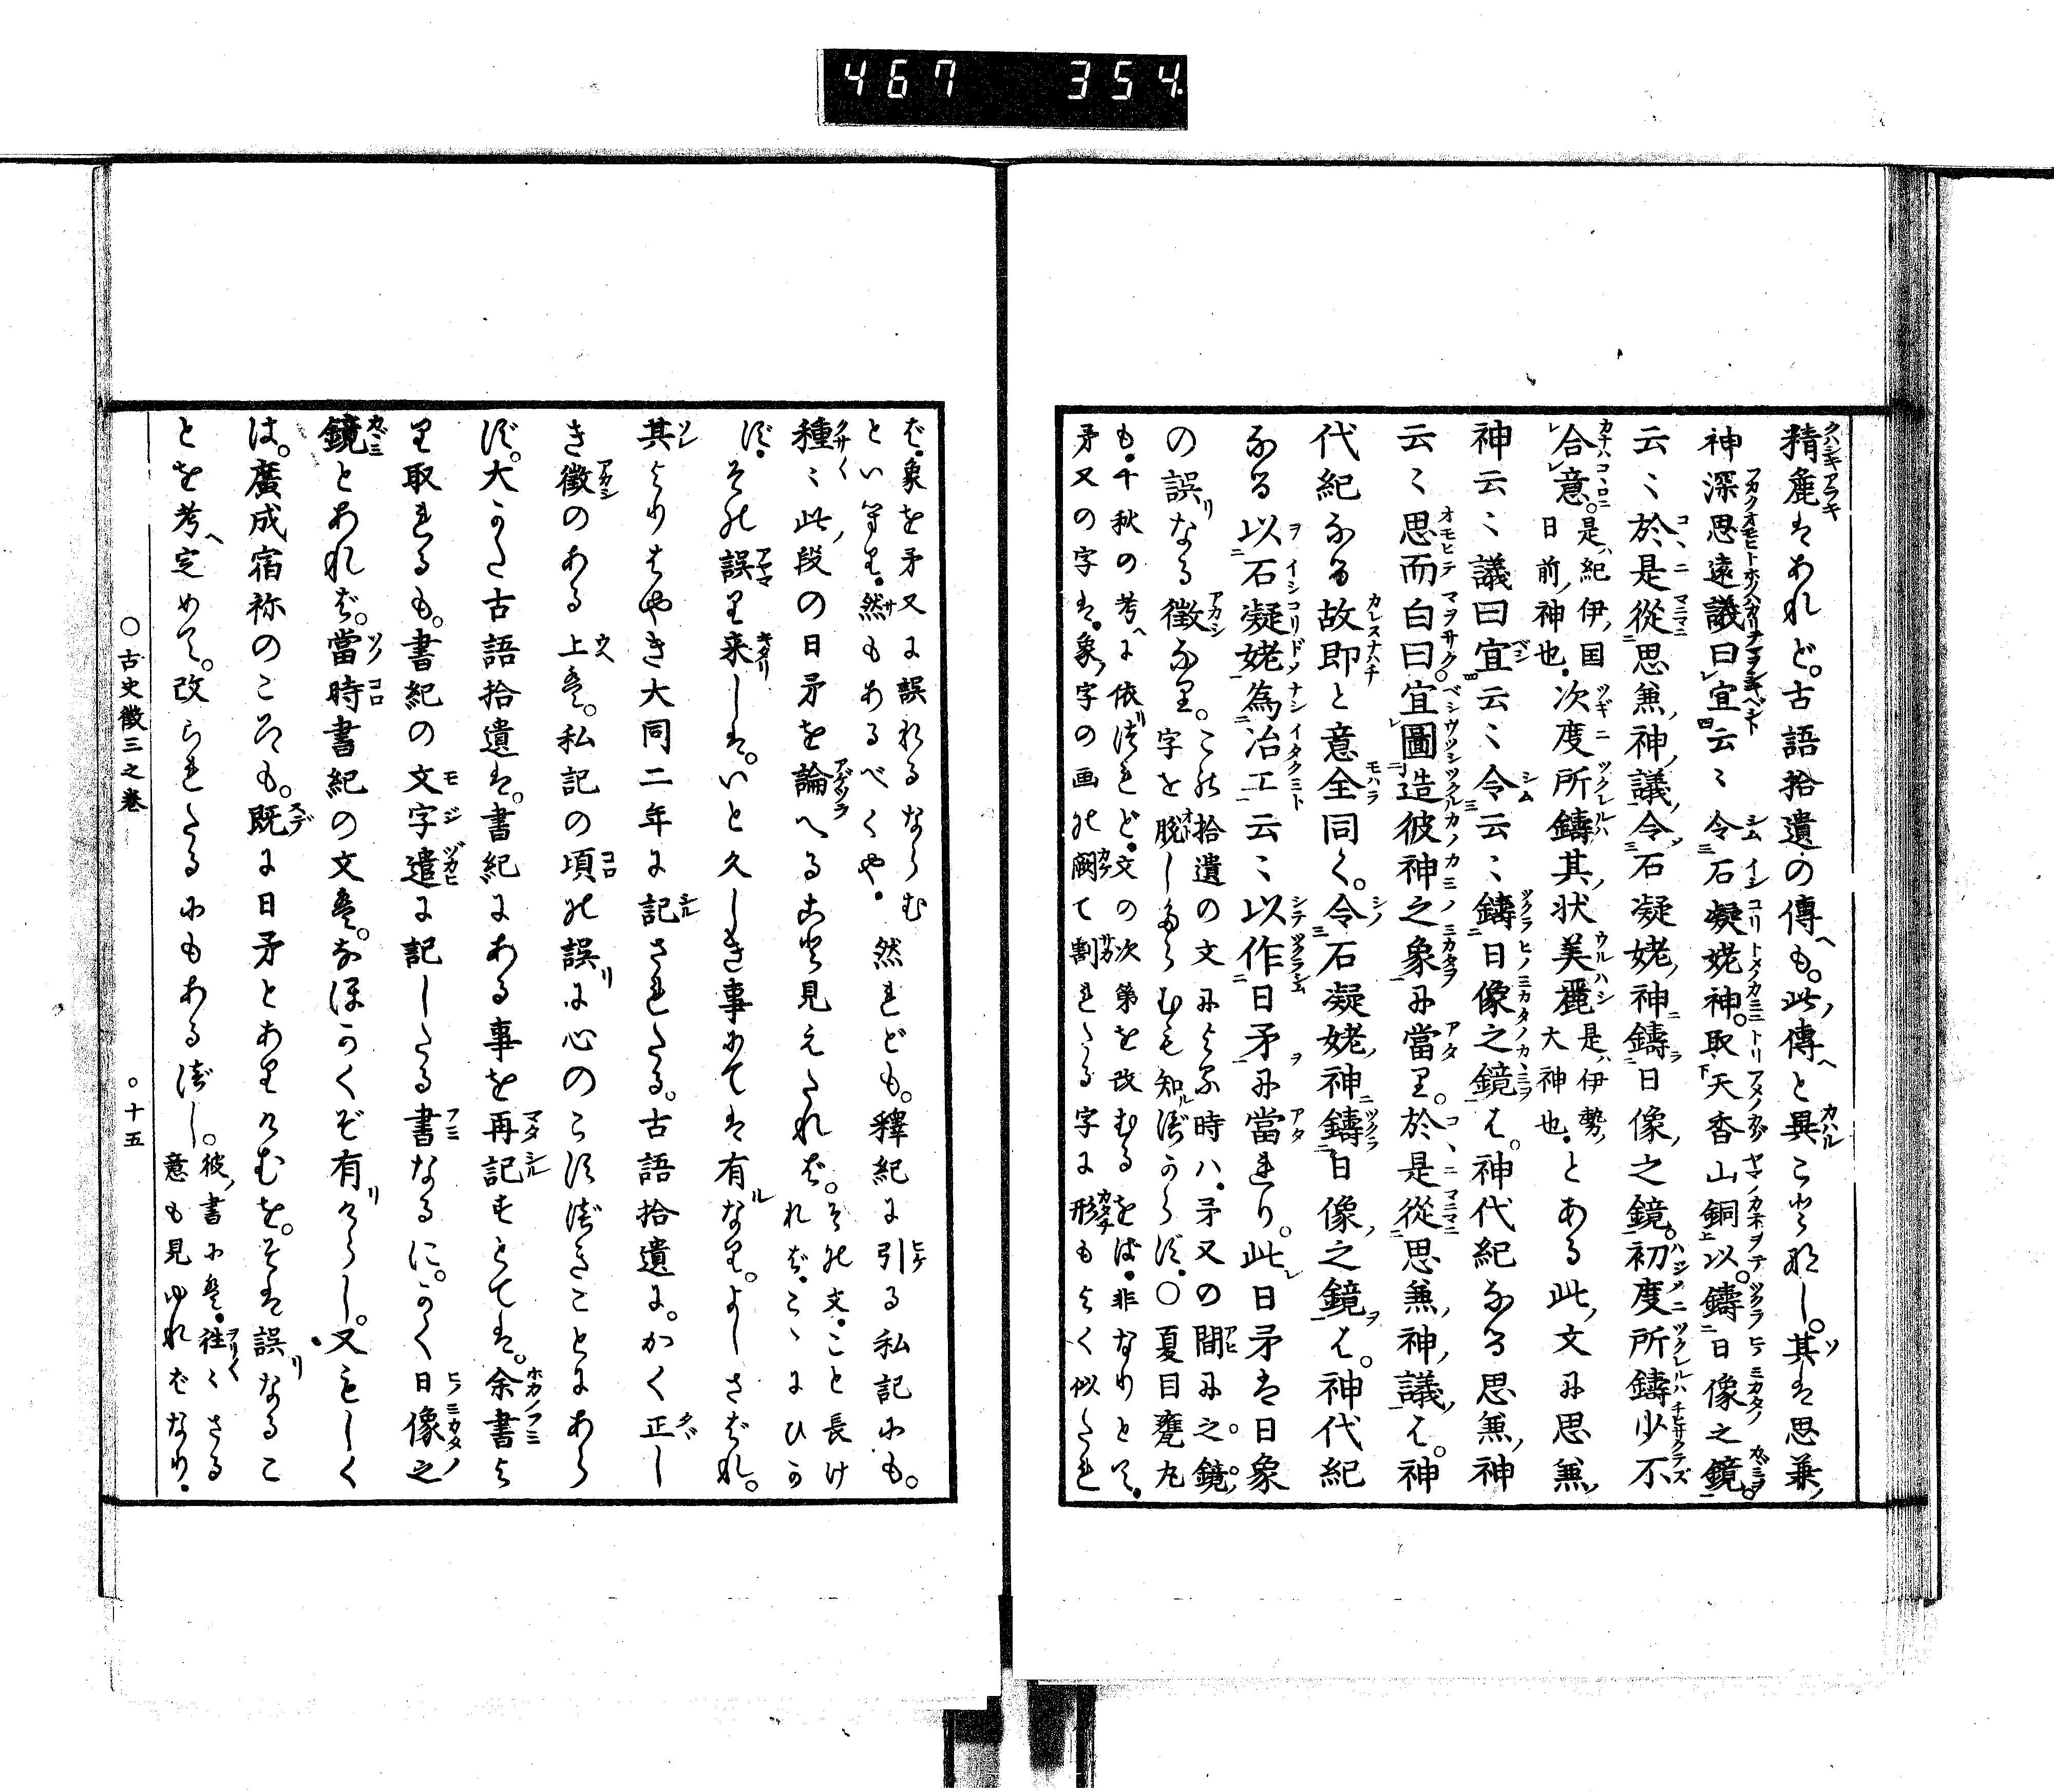 467 354
精麁はあれど。古語拾遺の傳も。此傳と異ことなし。其は思兼
神深思遠議曰宜云〻令石凝姥神。取天香山銅以。鑄日像之鏡。
云〻於是從思兼神議令石凝姥神鑄日像之鏡。初度所鑄少不
合意。是紀伊国日前神也。次度所鑄其状美麗是伊勢大神也。とある此文に思兼
神云〻議曰宜云〻令云〻鑄日像之鏡は。神代紀なる思兼神
云〻思而白曰。宜圖造彼神之象に當り。於是從思兼神議は。神
代紀なる故即と意全同く。令石凝姥神鑄日像之鏡は。神代紀
なる以石凝姥為冶工云〻以作日矛に當れり。此日矛は日象
の誤なる徴なり。この拾遺の文による時ハ。矛又の間に之。鏡。字を脱したらむも知べからず。〇夏目甕丸
も。千秋の考に依べれど。文の次第を改むるをば。非なりとて。
矛又の字は。象字の画の闕て割れたる字に形もよく似たれ
ば。象を矛又に誤れるならむ
といへるも。然もあるべくや。然れども。釋紀に引る私記にも。
種〻此段の日矛を論へること見えたれば。その文。こと長ければ。こゝにひかず。
その誤り来しは。いと久しき事にては有なり。よしさばれ。
其よりはやき大同二年に記されたる。古語拾遺に。かく正し
き徴のある上は。私記の頃の誤に心のこるべきことにあら
ず。大かた古語拾遺は。書紀にある事を再記すとては。余書よ
り取れるも。書紀の文字遣に記したる書なるに。かく日像之
鏡とあれば。當時書紀の文は。なほかくぞ有けらし。又もしく
は。廣成宿祢のころも。既に日矛とありけむを。そは誤なるこ
とを考定めて。改られたるにもあるべし。彼書には。往〻さる意も見ゆればなり。
〇古史徴三之巻 〇十五